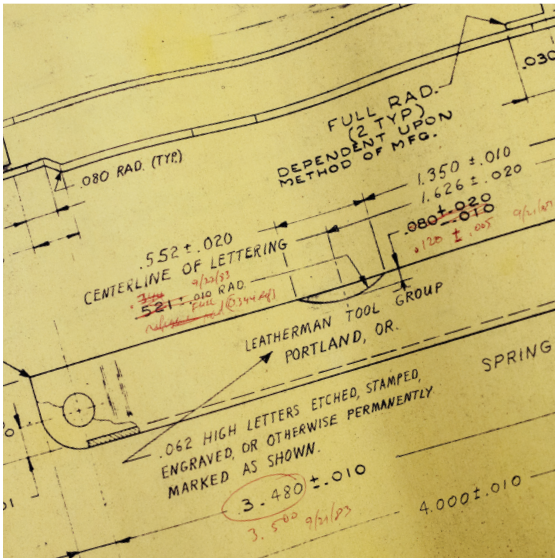 .030
FULL RAD.
(2 TYP)
DEPENDENT UPON
METHOD OF MFG.
.080 RAD. (TYP.)
1.350 ± .010
1.626 ± .020
.080 ± .020
.010
.120 ± .005 9/21/83
.552 ± .020
CENTERLINE OF LETTERING
9/20/83
.521 ± .010 RAD.
FULL
LEATHERMAN TOOL GROUP
PORTLAND, OR.
SPRING
.062 HIGH LETTERS ETCHED, STAMPED,
ENGRAVED, OR OTHERWISE PERMANENTLY
MARKED AS SHOWN.
3.480 ± .010
3.500 9/21/83
4.000 ± .010